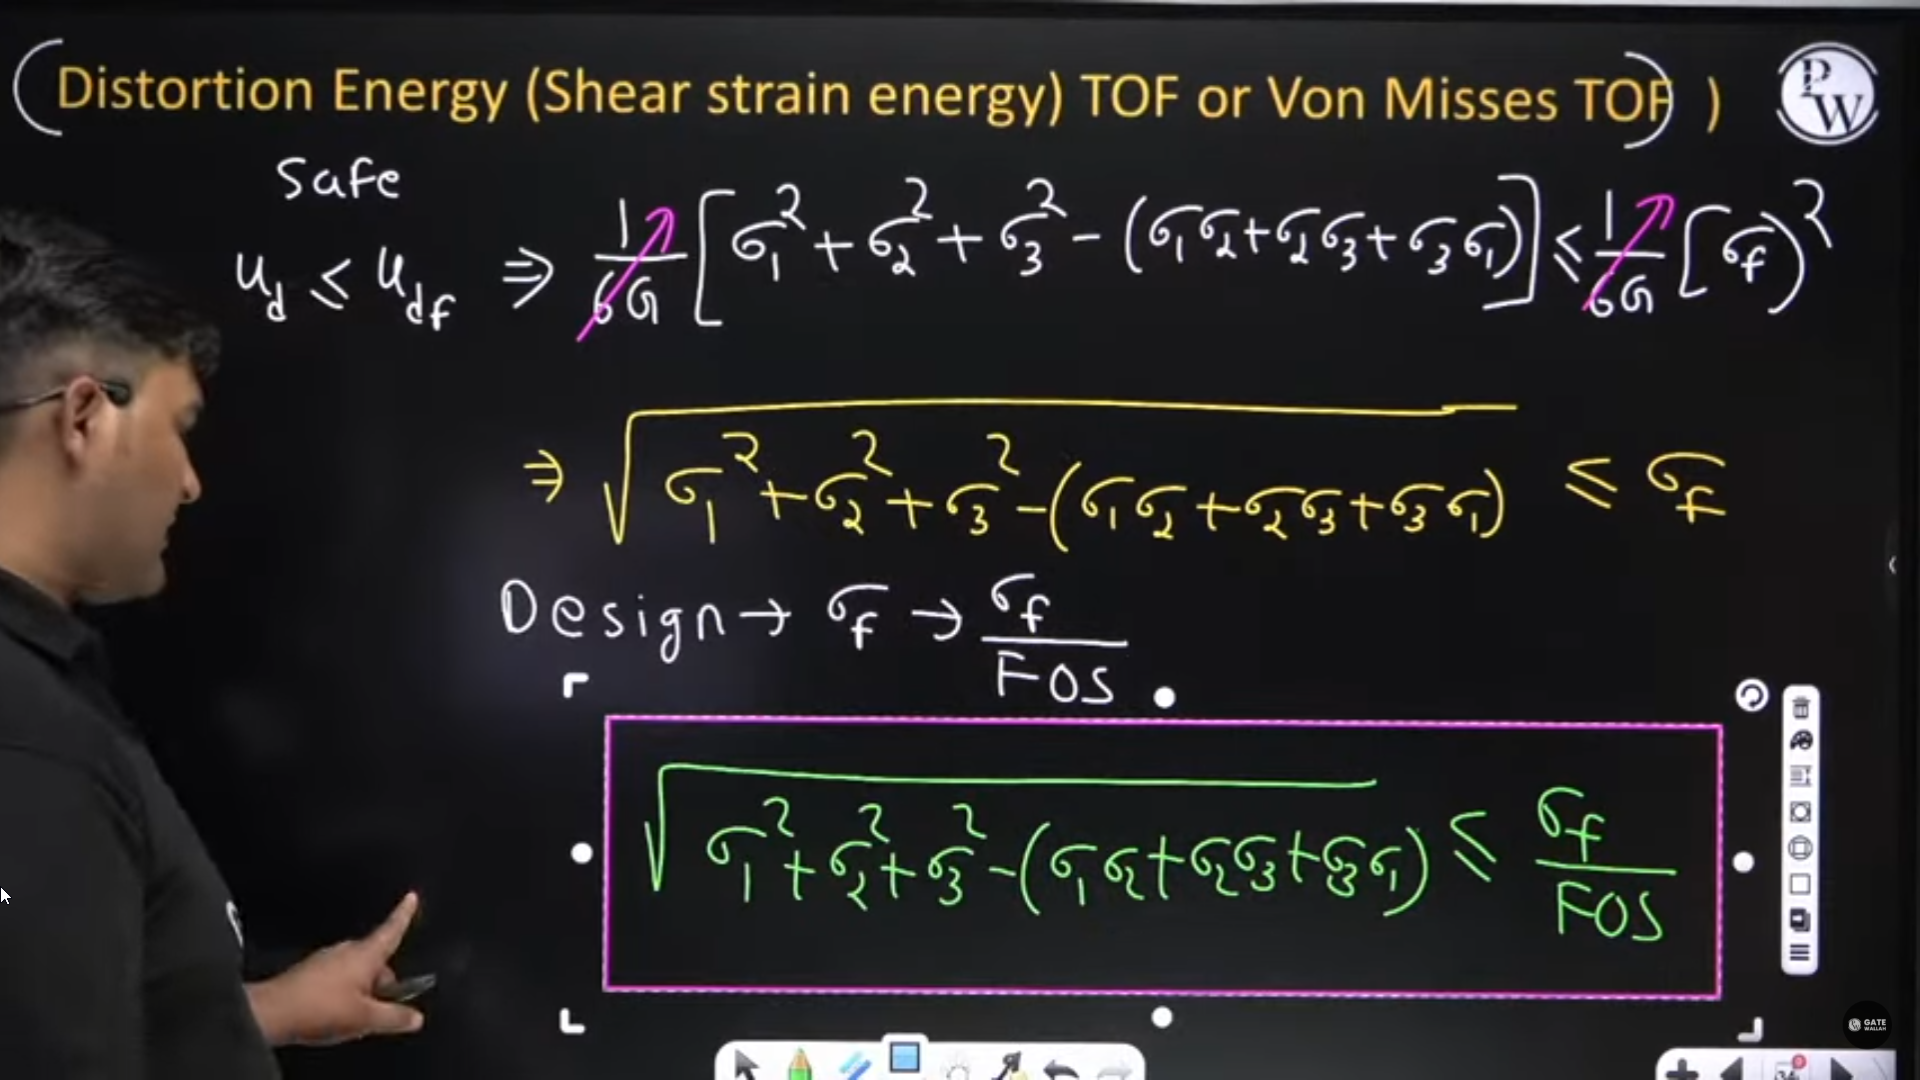 (Distortion Energy (Shear strain energy) TOF or Von Misses TOF)
PW
Safe
u_d ≤ u_df ⇒ 1/6G [σ₁² + σ₂² + σ₃² - (σ₁σ₂ + σ₂σ₃ + σ₃σ₁)] ≤ 1/6G [σ_f)²
⇒ √(σ₁² + σ₂² + σ₃² - (σ₁σ₂ + σ₂σ₃ + σ₃σ₁)) ≤ σ_f
Design → σ_f → σ_f/FOS
√(σ₁² + σ₂² + σ₃² - (σ₁σ₂ + σ₂σ₃ + σ₃σ₁)) ≤ σ_f/FOS
GATE
WALLAH